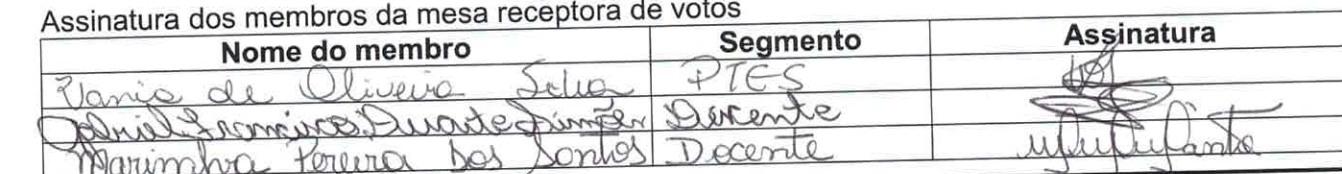 Assinatura dos membros da mesa receptora de votos
Nome do membro Segmento Assinatura
Vania de Oliveira Silva PTES
Gabriel Francisco Duarte Discente
Pereira dos Santos Docente